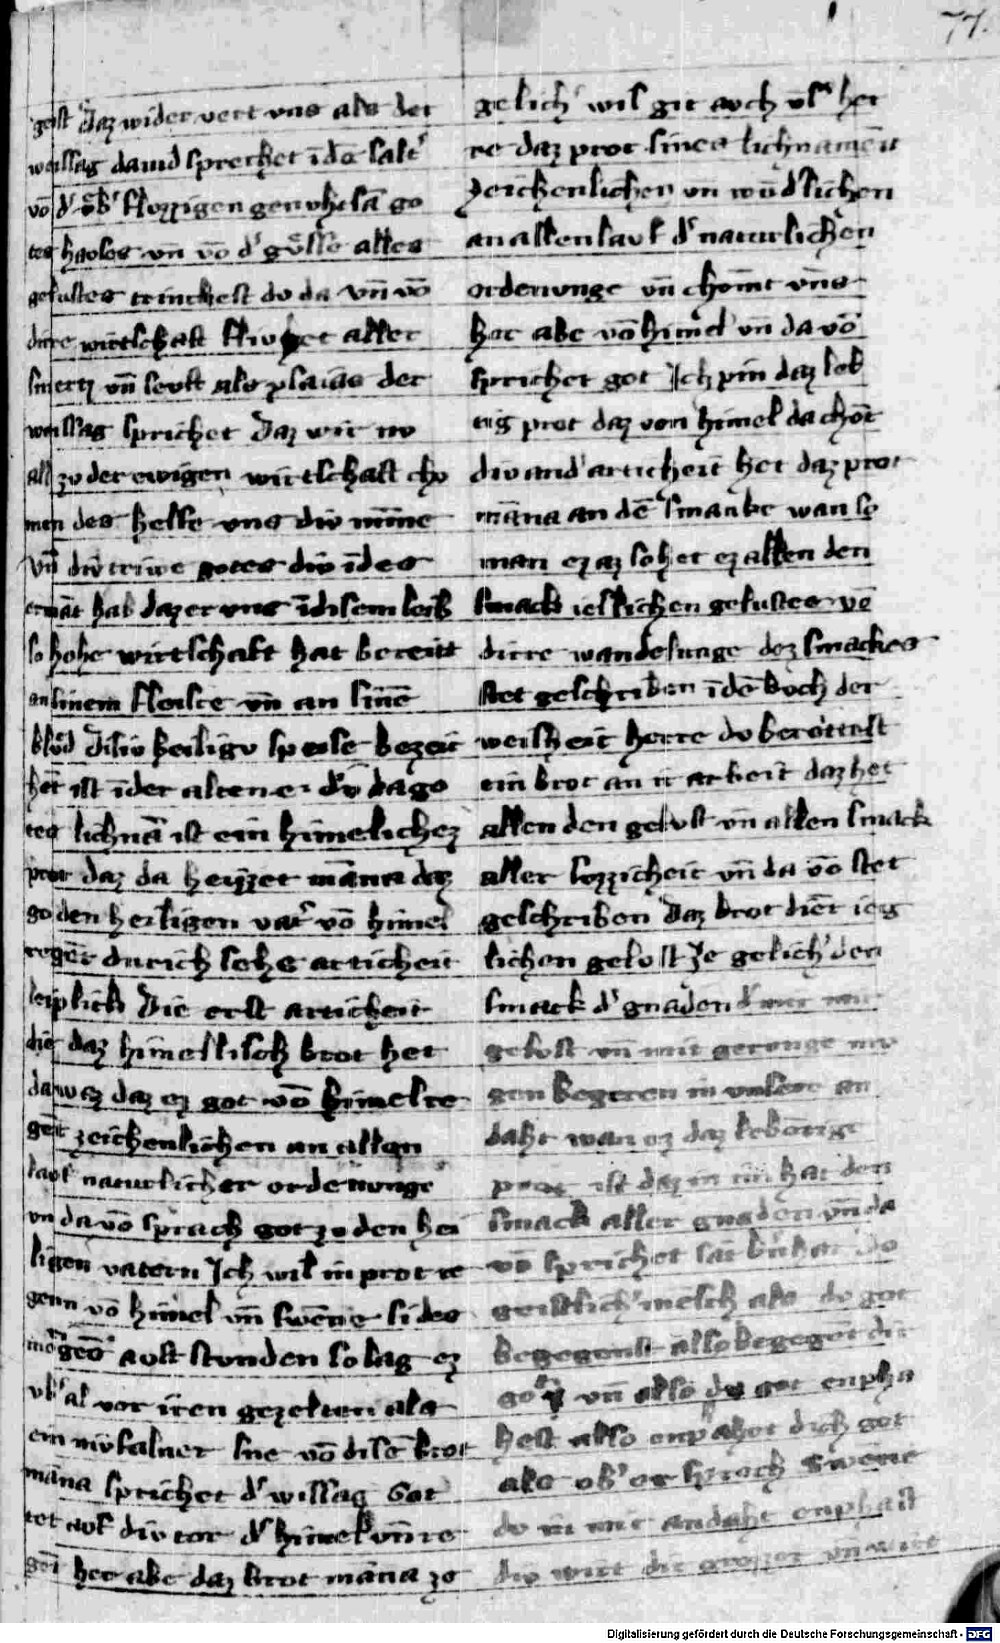 77.
geist Daz wider vert vns als der
weissag dauid sprechet ī dē salt͛
vō d͛ vb͛ flvzzigen genvhtsā go
tes havses vn̄ vō d͛ gvͦsse alles
gelustes trinckest dv da vn̄ vō
dirre wirtschaft flivhet aller
smertz vn̄ levft als ysaias der
weissag sprichet Daz wir nv
all zv der ewigen wirtschaft cho
men des helfe vns div minne
vn̄ div triwe gotes div ī des
ermāt hab daz er vns ī disem leib
so hohe wirtschaft hat bereitt
an sinem fleisce vn̄ an sinē
blvͦd Disiv heiligv speise bezeic
het ist ī der alten e · div da go
tes lichnā ist ein himelichez
prot daz da heizzet māna daz
go den heiligen vat͛ vō himel
regēt dvrich sehs articheit
leiplich Die erst articheit
die daz himelisch brot het
da waz daz ez got vō himel re
gēt zeichenlichen an allen
lavf naturlicher ordenvnge
vn da vō sprach got zv den hei
ligen vatern Ich wil in prot re
genn vō himel vn̄ swēne si des
morgēs avf stvnden so lag ez
vb͛ al vor iren gezelten als
ein niv falner sne vō disē brot
māna sprichet d͛ wissag Got
tet avf div tor d͛ himel vn̄ re
gēt her abe daz brot māna ze
gelich͛ wis git avch vns͛ her
re daz prot sines lichnamen
zeichenlichen vn̄ wūd͛lichen
an allen lavf d͛ naturlichen
ordenvnge vn̄ chomt vns
her abe vō himel vn̄ da vō
sprichet got Ich pin daz leb
tig prot daz von himel da chōt
div and͛ articheit het daz prot
māna an dē smacke wan so
man ez az so het ez allen den
smack ieslichen gelustes vō
dirre wandelunge dez smackes
stet geschriben ī dē bvch der
weisheit herre dv berotest
ein brot an ir arbeit daz het
allen den gelust vn̄ allen smack
aller svzzicheit vn̄ da vō stet
geschriben Daz brot diēt ieg
lichen gelvst Ze gelich͛ den
smack d͛ gnaden d͛ wir mit
gelvst vn̄ mit gervnge mv
gen begeren in vnserr an
daht wan ez daz lebētige
prot ist daz in im hat den
smack aller gnaden vn̄ da
vō sprichet sāt b͛nhar Dv
geistlich͛ mesch als dv got
begegenst also begegēt dir
got vn̄ also dv got enpha
hest also enpfahet dich got
als ob͛ er sprech Swene
dv in mit andaht enphast
div wirt dir grozzer vn̄ wirt
Digitalisierung gefördert durch die Deutsche Forschungsgemeinschaft - DFG